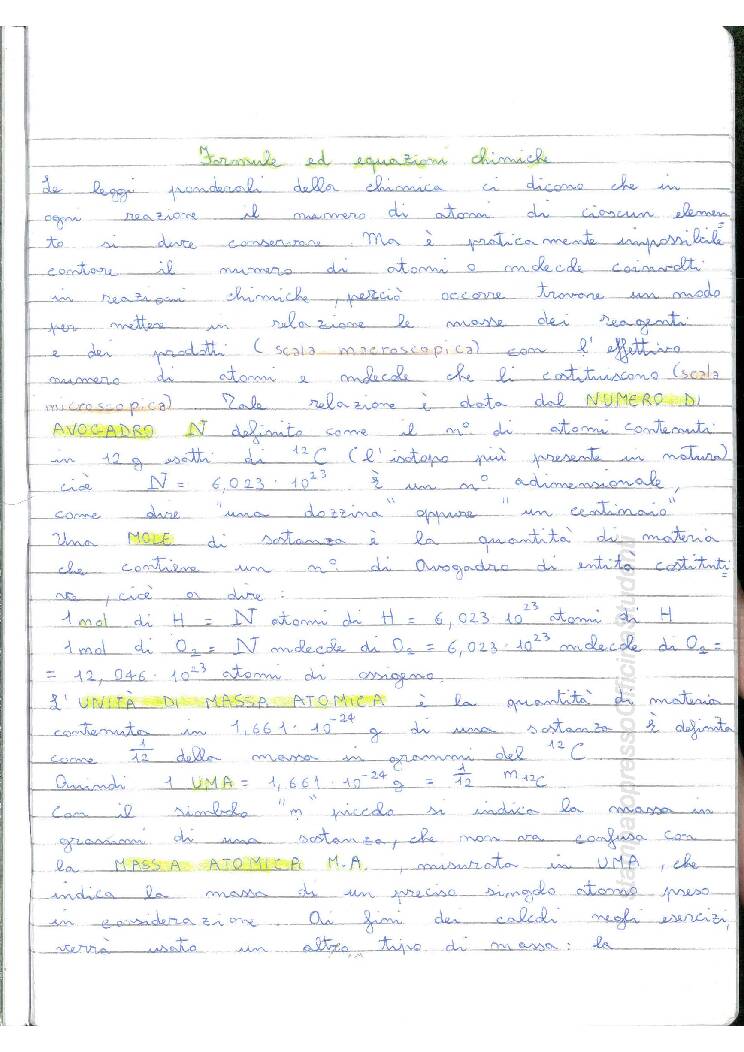 Formule ed equazioni chimiche
Le leggi ponderali della chimica ci dicono che in
ogni reazione il numero di atomi di ciascun elemen
to si deve conservare. Ma è praticamente impossibile
contare il numero di atomi o molecole coinvolti
in reazioni chimiche, perciò occorre trovare un modo
per mettere in relazione le masse dei reagenti
e dei prodotti (scala macroscopica) con l'effettivo
numero di atomi e molecole che li costituiscono (scala
microscopica). Tale relazione è data dal NUMERO DI
AVOGADRO N definito come il n° di atomi contenuti
in 12 g esatti di ¹²C (l'isotopo più presente in natura)
cioè N = 6,023 · 10²³ È un n° adimensionale,
come dire "una dozzina" oppure "un centinaio"
Una MOLE di sostanza è la quantità di materia
che contiene un n° di Avogadro di entità costituti
ve, cioè a dire:
1 mol di H = N atomi di H = 6,023 · 10²³ atomi di H
1 mol di O₂ = N molecole di O₂ = 6,023 · 10²³ molecole di O₂ =
= 12,046 · 10²³ atomi di ossigeno.
L'UNITÀ DI MASSA ATOMICA è la quantità di materia
contenuta in 1,661 · 10⁻²⁴ g di una sostanza. È definita
come 1/12 della massa in grammi del ¹²C.
Quindi 1 UMA = 1,661 · 10⁻²⁴ g = 1/12 m ¹²C
Con il simbolo "m" piccolo si indica la massa in
grammi di una sostanza, che non va confusa con
la MASSA ATOMICA M.A., misurata in UMA, che
indica la massa di un preciso singolo atomo preso
in considerazione. Ai fini dei calcoli negli esercizi,
verrà usato un altro tipo di massa: la
stampato presso officinastudenti